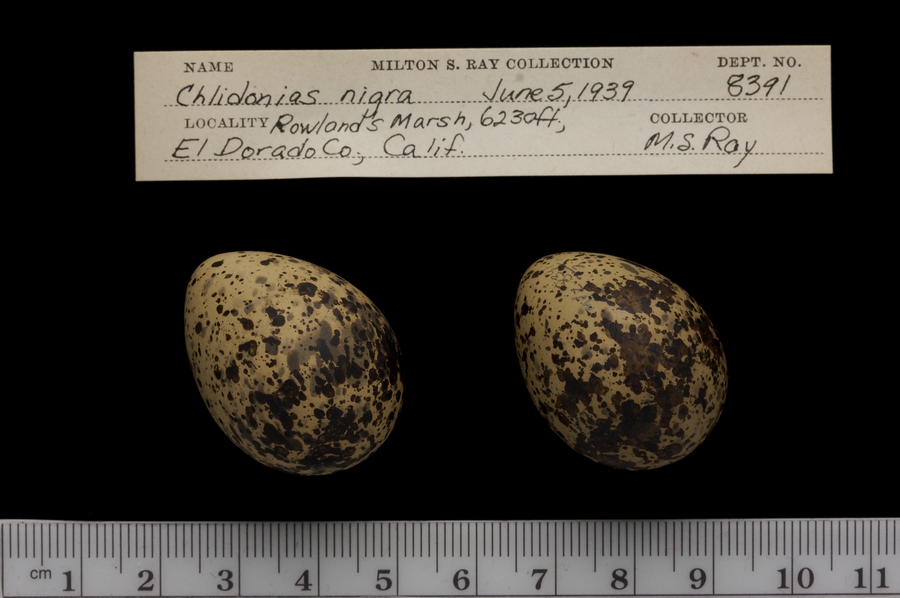 NAME MILTON S. RAY COLLECTION DEPT. NO.
Chlidonias nigra June 5, 1939 8391
LOCALITY Rowland's Marsh, 6230ft, COLLECTOR
El Dorado Co, Calif. M.S. Ray
cm 1 2 3 4 5 6 7 8 9 10 11